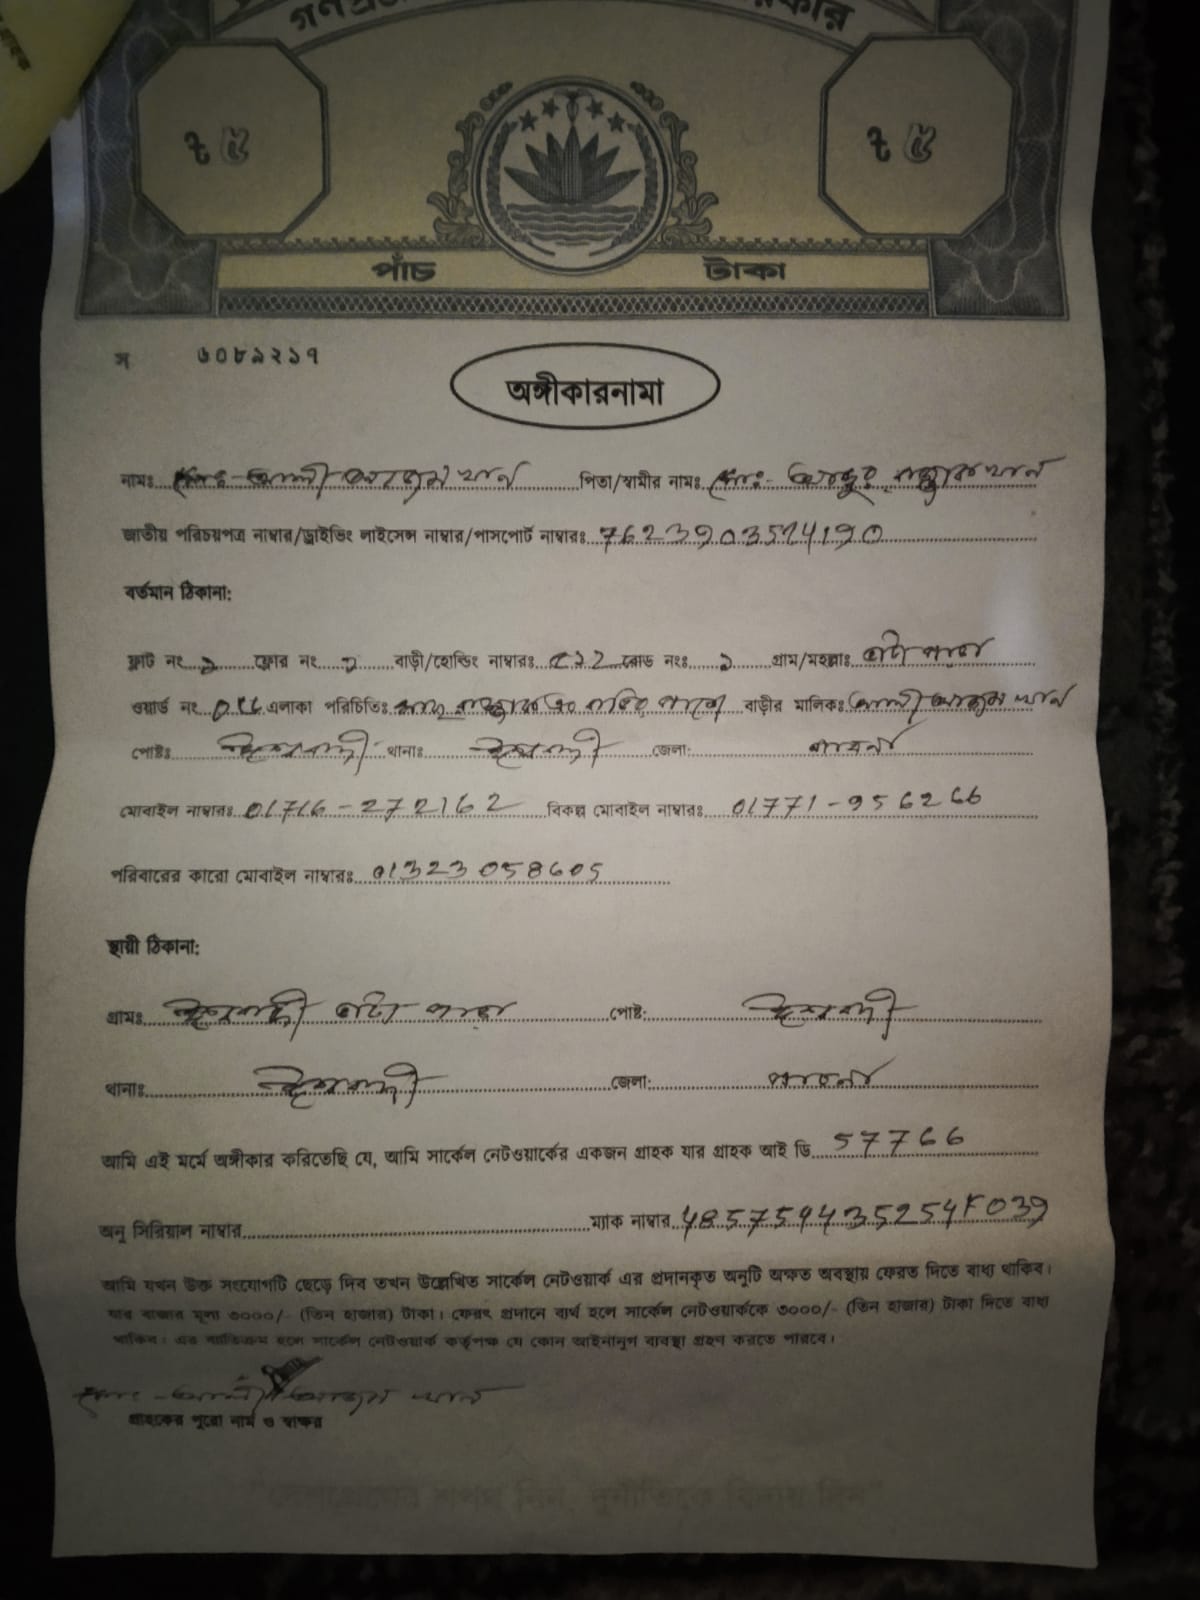 ৳ ৫ ৳ ৫
পাঁচ টাকা
স ৬০৮৯২১৭
অঙ্গীকারনামা
নামঃ মোঃ- আলী আজম খান পিতা/স্বামীর নামঃ মোঃ- আব্দুর রাজ্জাক খান
জাতীয় পরিচয়পত্র নাম্বার/ড্রাইভিং লাইসেন্স নাম্বার/পাসপোর্ট নাম্বারঃ 7623903524190
বর্তমান ঠিকানা:
ফ্লাট নং ফ্লোর নং বাড়ী/হোল্ডিং নাম্বারঃ রোড নংঃ গ্রাম/মহল্লাঃ পাড়া
ওয়ার্ড নং এলাকা পরিচিতিঃ বাড়ীর মালিকঃ আলী আজম খান
পোষ্টঃ ঈশ্বরদী থানাঃ ঈশ্বরদী জেলা: পাবনা
মোবাইল নাম্বারঃ 01716-272162 বিকল্প মোবাইল নাম্বারঃ 01771-956266
পরিবারের কারো মোবাইল নাম্বারঃ 01323058605
স্থায়ী ঠিকানা:
গ্রামঃ ঈশ্বরদী পাড়া পোষ্ট: ঈশ্বরদী
থানাঃ ঈশ্বরদী জেলা: পাবনা
আমি এই মর্মে অঙ্গীকার করিতেছি যে, আমি সার্কেল নেটওয়ার্কের একজন গ্রাহক যার গ্রাহক আই ডি 57766
অনু সিরিয়াল নাম্বার ম্যাক নাম্বার 4857594435254F039
আমি যখন উক্ত সংযোগটি ছেড়ে দিব তখন উল্লেখিত সার্কেল নেটওয়ার্ক এর প্রদানকৃত অনুটি অক্ষত অবস্থায় ফেরত দিতে বাধ্য থাকিব।
যার বাজার মূল্য ৩০০০/- (তিন হাজার) টাকা। ফেরৎ প্রদানে ব্যর্থ হলে সার্কেল নেটওয়ার্ককে ৩০০০/- (তিন হাজার) টাকা দিতে বাধ্য
থাকিব। এর ব্যতিক্রম হলে সার্কেল নেটওয়ার্ক কর্তৃপক্ষ যে কোন আইনানুগ ব্যবস্থা গ্রহণ করতে পারবে।
মোঃ-আলী আজম খান
গ্রাহকের পুরো নাম ও স্বাক্ষর